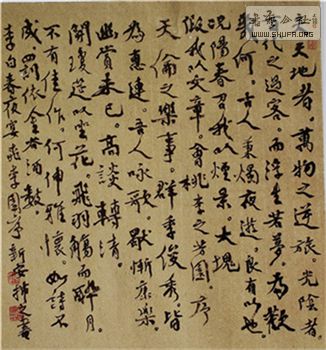 書法公社
www.SHUFA.ORG
夫天地者。萬物之逆旅。光陰者。
百代之過客。而浮生若夢。為歡
幾何。古人秉燭夜遊。良有以也。
況陽春召我以煙景。大塊
假我以文章。會桃李之芳園。序
天倫之樂事。群季俊秀皆
為惠連。吾人詠歌。獨慚康樂。
幽賞未已。高談轉清。
開瓊筵以坐花。飛羽觴而醉月。
不有佳作。何伸雅懷。如詩不
成。罰依金谷酒數。
李白春夜宴桃李園序 新安